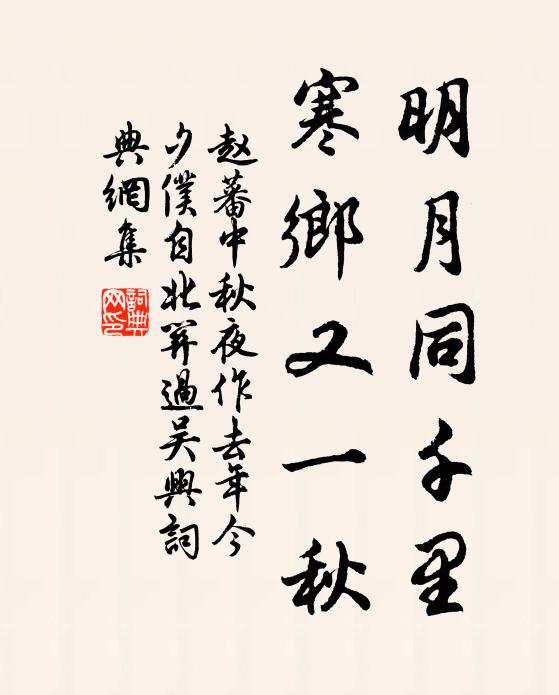 明月同千里
寒鄉又一秋
赵蕃中秋夜作去年今
夕僕自北箅過吴興詞
典網集
詞典网印